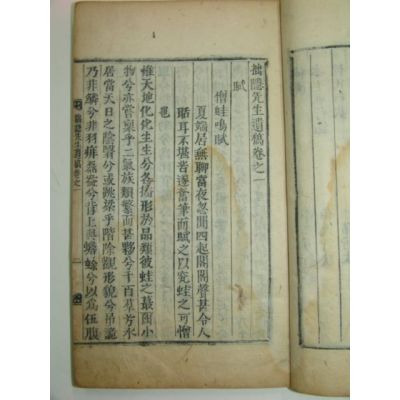 拙隱先生遺稿卷之一
賦
憎蛙鳴賦
夏端居無聊當夜忽聞四起閣閣聲甚令人
聒耳不堪者遂當筆而賦之以究蛙之可憎
惟天地化化生生兮各形於品類彼蛙之蕞爾小
物兮亦嘗稟乎二氣族類繁而甚夥兮千百水
居當天日之陰翳兮或跳梁乎階除觀形貌兮吊詭
乃非鱗兮非羽磊兮背上與蟾蜍兮以爲伍腹
拙隱先生遺稿卷之一